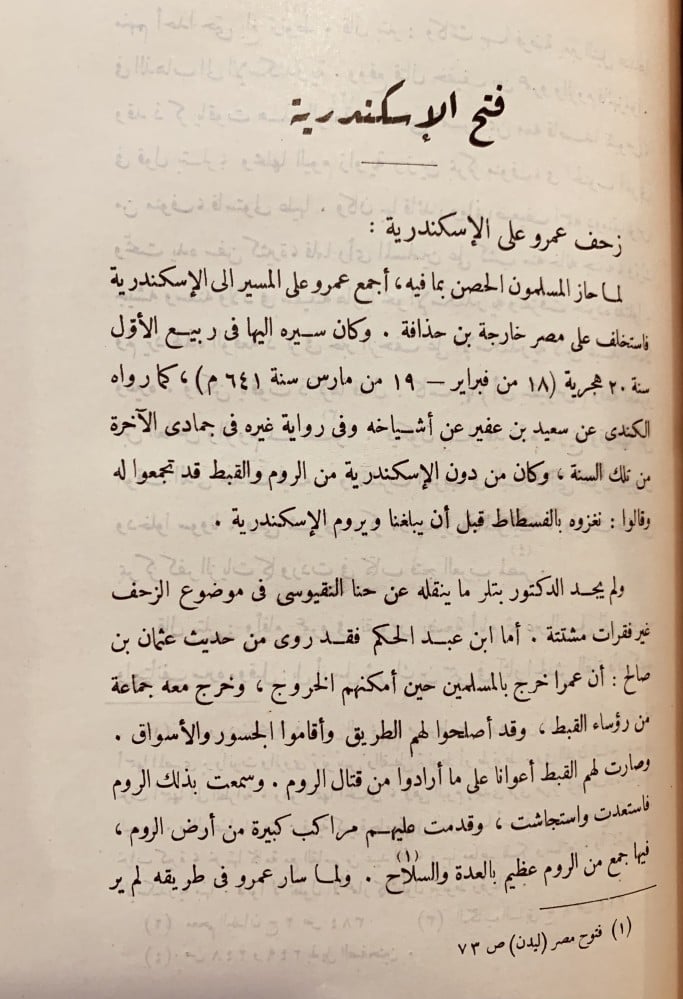 فتح الإسكندرية
زحف عمرو على الإسكندرية :
لما حاز المسلمون الحصن بما فيه، أجمع عمرو على المسير الى الإسكندرية
فاستخلف على مصر خارجة بن حذافة . وكان سيره اليها فى ربيع الأوّل
سنة ٢٠ هجرية (١٨ من فبراير – ١٩ من مارس سنة ٦٤١ م)، كما رواه
الكندى عن سعيد بن عفير عن أشياخه وفى رواية غيره فى جمادى الآخرة
من تلك السنة ، وكان من دون الإسكندرية من الروم والقبط قد تجمعوا له
وقالوا : نغزوه بالفسطاط قبل أن يبلغنا ويروم الإسكندرية .
ولم يجد الدكتور بتلر ما ينقله عن حنا النقيوسى فى موضوع الزحف
غير فقرات مشتتة . أما ابن عبد الحكم فقد روى من حديث عثمان بن
صالح : أن عمرا خرج بالمسلمين حين أمكنهم الخروج ، وخرج معه جماعة
من رؤساء القبط ، وقد أصلحوا لهم الطريق وأقاموا الجسور والأسواق .
وصارت لهم القبط أعوانا على ما أرادوا من قتال الروم . وسمعت بذلك الروم
فاستعدت واستجاشت ، وقدمت عليهم مراكب كبيرة من أرض الروم ،
فيها جمع من الروم عظيم بالعدة والسلاح (١) . ولما سار عمرو فى طريقه لم ير
(١) فتوح مصر (ليدن) ص ٧٣